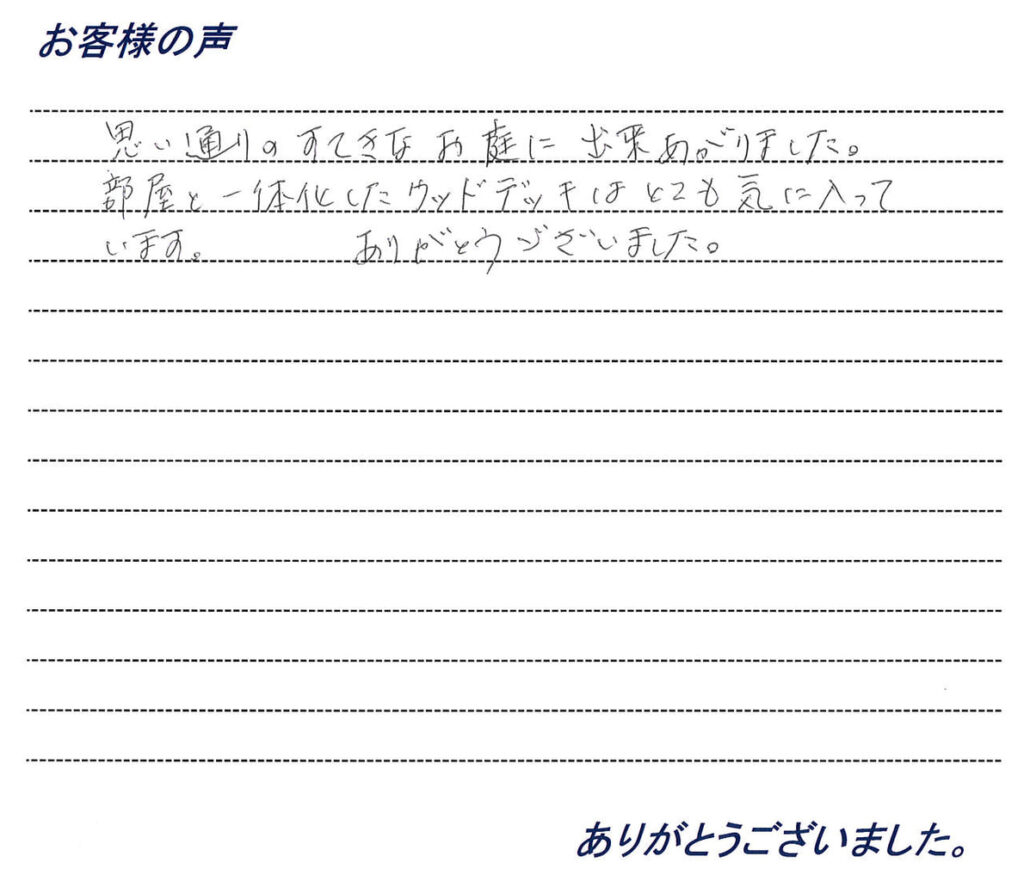 お客様の声
思い通りのすてきなお庭に出来あがりました。
部屋と一体化したウッドデッキはとても気に入って
います。 ありがとうございました。
ありがとうございました。